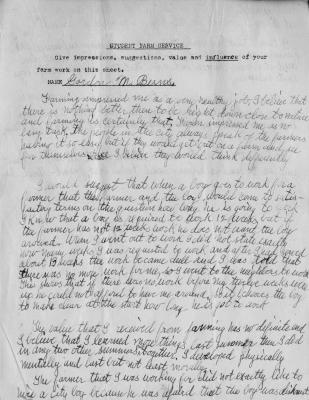 STUDENT FARM SERVICE
Give impressions, suggestions, value and influence of your
farm work on this sheet.
NAME Gordon M. Burns
Farming impressed me as a very healthy job, I believe that
there is nothing better than to be kept down close to nature
and farming is certainly that. Work impressed me as no
easy task. The people in the city always speak of the farmers
as having it so easy but if they would get out on a farm and see
for themselves I believe they would think differently
I would suggest that when a boy goes to work for a
farmer that the farmer and the boy would come to satis-
factory terms on the question how long he is going to stay.
I know that a boy is required to work 12 weeks but if
the farmer has not 12 weeks work he does not want the boy
around. When I went out to work I did not state exactly
how many weeks I was requested to work and after I had served
about 10 weeks the work became dull and I was told that
there was no more work for me, so I went to the neighbors to work
This shows that if there was no work before my twelve weeks were
up he could not afford to have me around. So it behooves the boy
to make clear at the start how long he is to work
The value that I received from farming has no definite end
I believe that I learned more things last summer than I did
in any two other summers together. I developed physically
mentally and last but not least morally.
The farmer that I was working for did not exactly like to
hire a city boy because he was afraid that the boy was dishonest